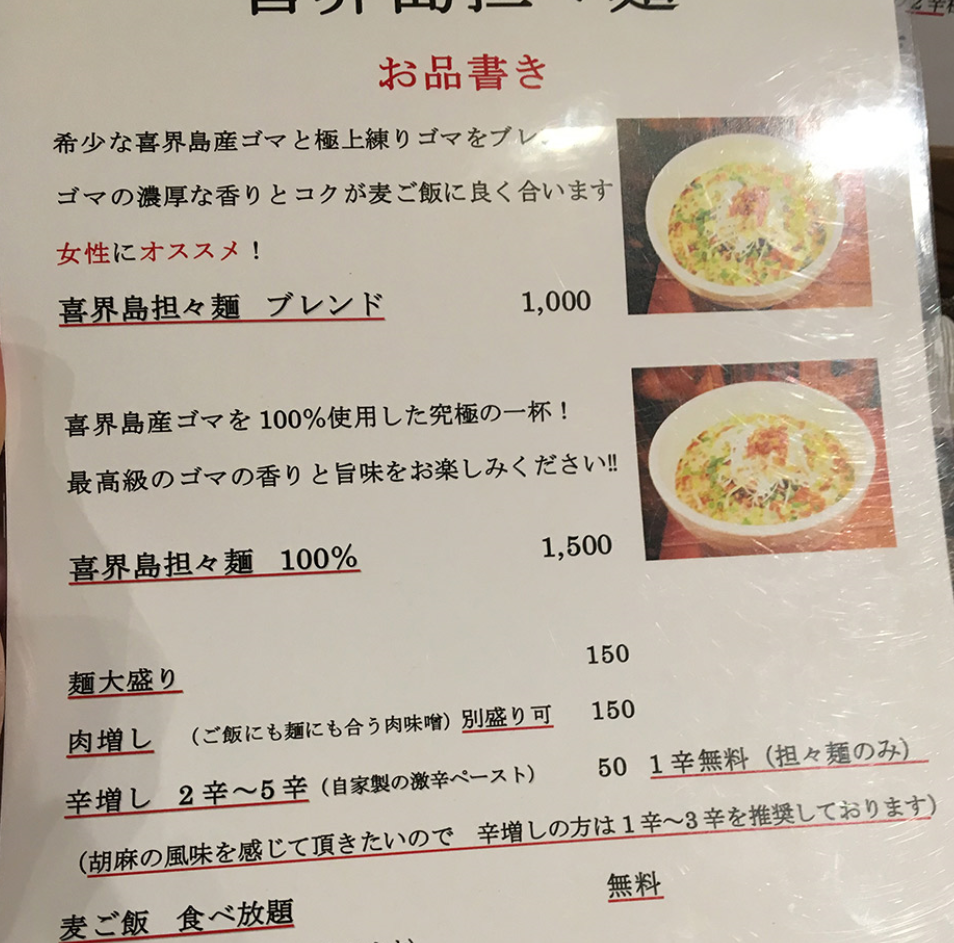 喜界島担々麺
お品書き
希少な喜界島産ゴマと極上練りゴマをブレ
ゴマの濃厚な香りとコクが麦ご飯に良く合います
女性にオススメ！
喜界島担々麺 ブレンド 1,000
喜界島産ゴマを100%使用した究極の一杯！
最高級のゴマの香りと旨味をお楽しみください!!
喜界島担々麺 100% 1,500
麺大盛り 150
肉増し （ご飯にも麺にも合う肉味噌）別盛り可 150
辛増し 2辛～5辛（自家製の激辛ペースト） 50 1辛無料（担々麺のみ）
（胡麻の風味を感じて頂きたいので 辛増しの方は1辛～3辛を推奨しております）
麦ご飯 食べ放題 無料